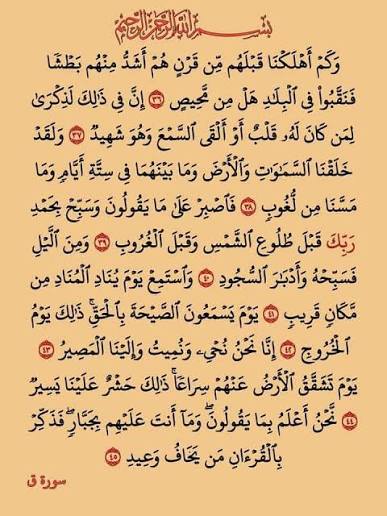 بِسْمِ ٱللَّهِ ٱلرَّحْمَٰنِ ٱلرَّحِيمِ
وَكَمْ أَهْلَكْنَا قَبْلَهُم مِّن قَرْنٍ هُمْ أَشَدُّ مِنْهُم بَطْشًا
فَنَقَّبُوا۟ فِى ٱلْبِلَٰدِ هَلْ مِن مَّحِيصٍ ٣٦ إِنَّ فِى ذَٰلِكَ لَذِكْرَىٰ
لِمَن كَانَ لَهُۥ قَلْبٌ أَوْ أَلْقَى ٱلسَّمْعَ وَهُوَ شَهِيدٌ ٣٧ وَلَقَدْ
خَلَقْنَا ٱلسَّمَٰوَٰتِ وَٱلْأَرْضَ وَمَا بَيْنَهُمَا فِى سِتَّةِ أَيَّامٍ وَمَا
مَسَّنَا مِن لُّغُوبٍ ٣٨ فَٱصْبِرْ عَلَىٰ مَا يَقُولُونَ وَسَبِّحْ بِحَمْدِ
رَبِّكَ قَبْلَ طُلُوعِ ٱلشَّمْسِ وَقَبْلَ ٱلْغُرُوبِ ٣٩ وَمِنَ ٱلَّيْلِ
فَسَبِّحْهُ وَأَدْبَٰرَ ٱلسُّجُودِ ٤٠ وَٱسْتَمِعْ يَوْمَ يُنَادِ ٱلْمُنَادِ مِن
مَّكَانٍ قَرِيبٍ ٤١ يَوْمَ يَسْمَعُونَ ٱلصَّيْحَةَ بِٱلْحَقِّ ۚ ذَٰلِكَ يَوْمُ
ٱلْخُرُوجِ ٤٢ إِنَّا نَحْنُ نُحْىِۦ وَنُمِيتُ وَإِلَيْنَا ٱلْمَصِيرُ ٤٣
يَوْمَ تَشَقَّقُ ٱلْأَرْضُ عَنْهُمْ سِرَاعًا ۚ ذَٰلِكَ حَشْرٌ عَلَيْنَا يَسِيرٌ
٤٤ نَّحْنُ أَعْلَمُ بِمَا يَقُولُونَ ۖ وَمَآ أَنتَ عَلَيْهِم بِجَبَّارٍ ۖ فَذَكِّرْ
بِٱلْقُرْءَانِ مَن يَخَافُ وَعِيدِ ٤٥
سورة ق